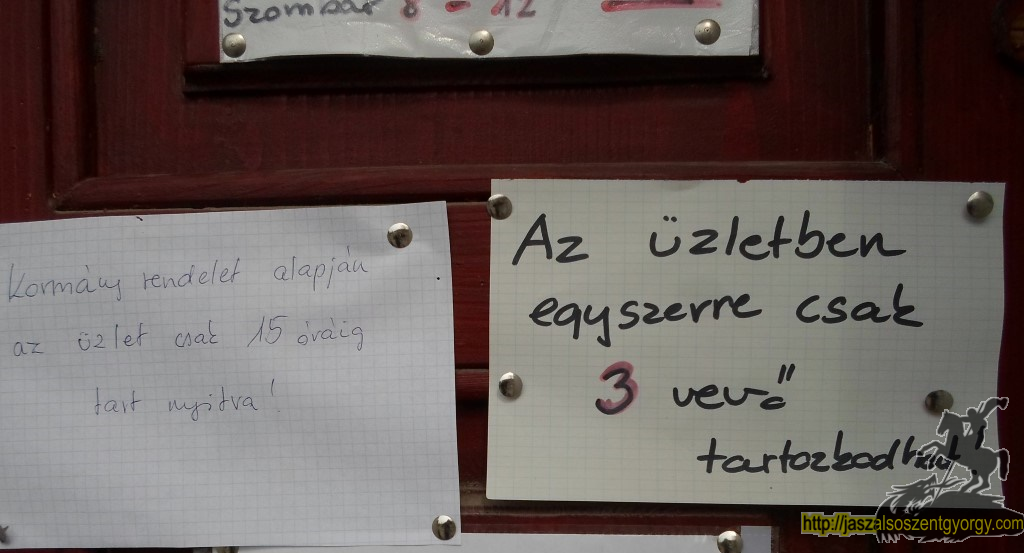 Szombat 8 - 12
Kormány rendelet alapján
az üzlet csak 15 óráig
tart nyitva!
Az üzletben
egyszerre csak
3 vevő
tartozkodhat!
http://jaszalsoszentgyorgy.com/